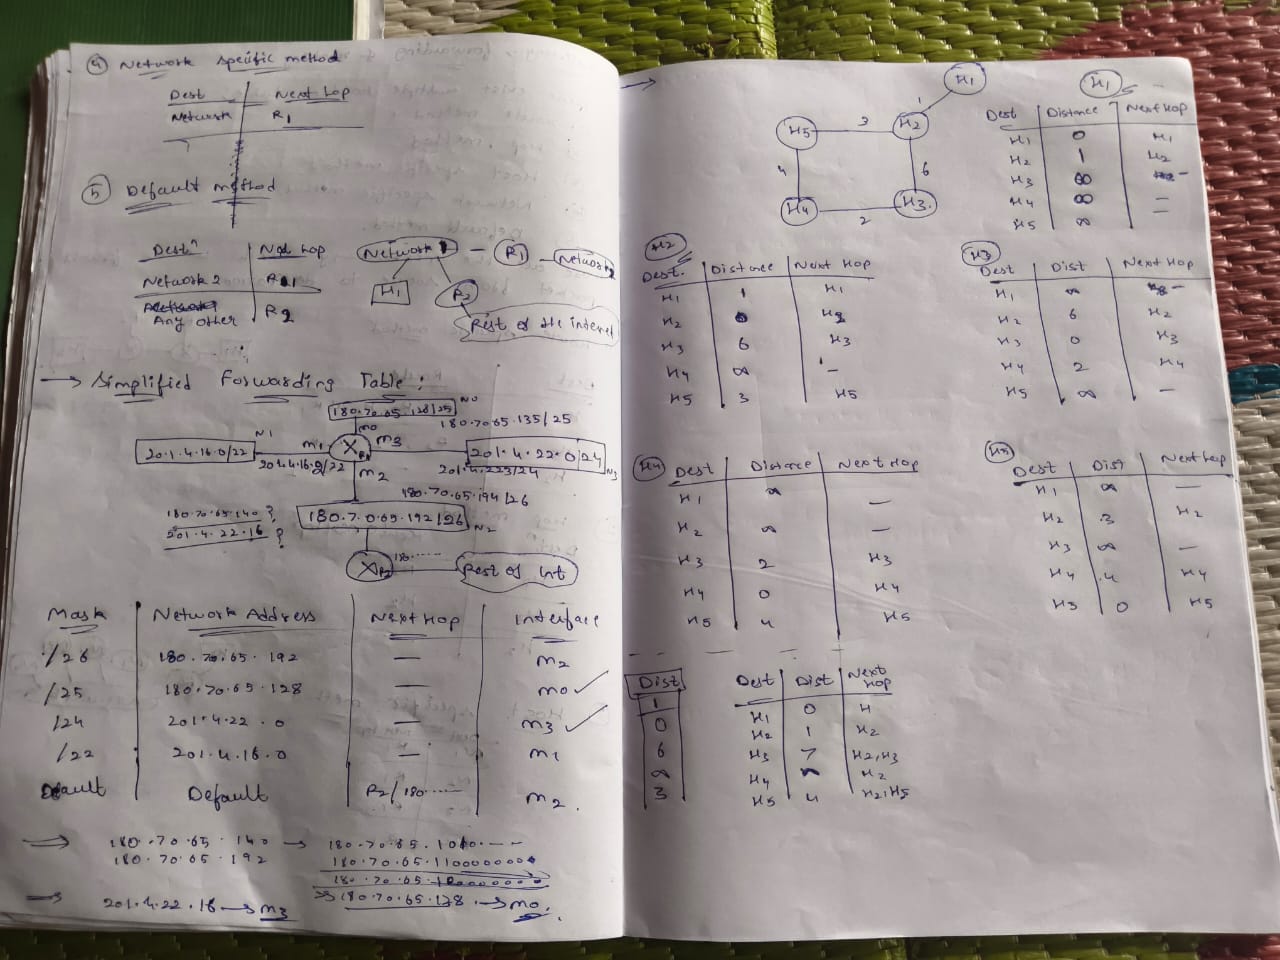 4 Network specific method
Dest Next hop
Network R1
5 Default method
Destn Next hop
Network 2 R1
Any other R2
Network 1 - R1 - Network 2
H1 R2
Rest of the internet
→ Simplified Forwarding Table:
180.70.65.128/25 N0
m0 180.70.65.135/25
20.1.4.16.0/22 N1 m1 R1 m3 201.4.22.0/24 N3
201.4.16.2/22 201.4.22.3/24
m2
180.70.65.194/26
180.70.65.140?
180.7.0.65.192/26 N2
201.4.22.16?
R2 180...... Rest of Int
Mask Network Address Next Hop Interface
/26 180.70.65.192 — m2
/25 180.70.65.128 — m0 ✓
/24 201.4.22.0 — m3 ✓
/22 201.4.16.0 — m1
Default Default R2/180...... m2.
⇒ 180.70.65.140 → 180.70.65.1010...
180.70.65.192 180.70.65.11000000
180.70.65.10000000
⇒ 180.70.65.128 → m0.
⇒ 201.4.22.16 → m3
→
H1
1
H5 3 H2
4 6
H4 2 H3
H1
Dest Distance Next Hop
H1 0 H1
H2 1 H2
H3 ∞ -
H4 ∞ —
H5 ∞ —
H2
Dest. Distance Next Hop
H1 1 H1
H2 0 H2
H3 6 H3
H4 ∞ -
H5 3 H5
H3
Dest Dist Next Hop
H1 ∞ -
H2 6 H2
H3 0 H3
H4 2 H4
H5 ∞ —
H4
Dest Distance Next Hop
H1 ∞ —
H2 ∞ —
H3 2 H3
H4 0 H4
H5 4 H5
H5
Dest Dist Next hop
H1 ∞ —
H2 3 H2
H3 ∞ —
H4 4 H4
H5 0 H5
Dist
1
0
6
∞
3
Dest Dist Next Hop
H1 0 H
H2 1 H2
H3 7 H2,H3
H4 ∞ H2
H5 4 H2,H5